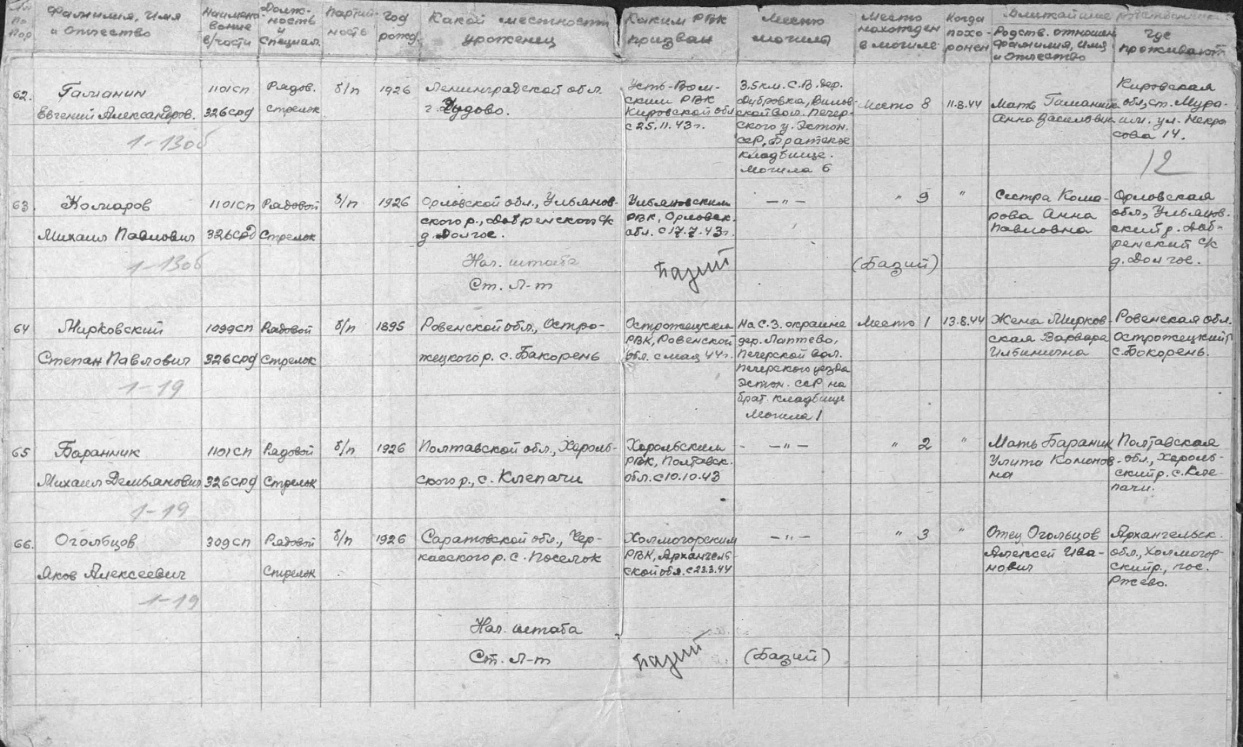 №№ по пор
Фамилия, Имя и Отчество
Наимено-вание в/части
Долж-ность и специал.
Партий-ность
год рожд.
Какой местности уроженец
Каким РВК призван
Место могила
Место нахожден в могиле
Когда похо-ронен
Ближайшие родственники
Родств. отношен. фамилия, имя и отчество
Где проживают
62.
Галианин
Евгений Александров.
1-130б
1101сп
326срд
Рядов.
стрелок
б/п
1926
Ленинградской обл.
г. Чудово.
Усть-Вым-
ским РВК
Кировской обл
с 25.11.43г.
3.5км. С.В. дер.
Дубровка,
ской вол. Печер-
ского у. Эстон.
ССР, Братское
кладбище.
Могила 6
Место 8
11.8.44
Мать
Анна Василовн
Кировская
обл, ст. Мура-
ши. ул. Некра
сова 14.
12
63.
Комаров
Михаил Павлович
1-130б
1101сп
326срд
Рядовой
Стрелок
б/п
1926
Орловской обл., Ульянов-
ского р., Дебренской с/с
д. Долгое.
Ульяновским
РВК, Орловск.
обл. с 17.7.43г.
—"—
" 9
"
Сестра Кома-
рова Анна
Павловна
Орловская
обл, Ульянов-
ский р. Деб-
ренский с/с
д. Долгое.
Нач. штаба
Ст. Л-т
Базий
(Базий)
64
Мирковский
Степан Павлович
1-19
1099сп
326срд
Рядовой
Стрелок
б/п
1895
Ровенской обл., Остро-
жецкого р. с. Бакорень
Острожецким
РВК, Ровенской
обл. с мая 44г.
На С.З. окраине
дер. Лаптево,
Печерской вол.
Печерского уезда
Эстон. ССР на
брат. кладбище
Могила 1
Место 1
13.8.44
Жена Мирков-
ская Варвара
Ровенская обл.
Острожецкий р
с. Бокорень.
65
Баранник
Михаил Демьянович
1-19
1101сп
326срд
Рядовой
Стрелок
б/п
1926
Полтавской обл., Хероль-
ского р., с. Клепачи
Херольским
РВК, Полтавск.
обл. с 10.10.43
—"—
" 2
"
Мать Бараник
Улита Комонов-
на
Полтавская
обл., Хероль-
ский р. с. Кле-
пачи.
66.
Огольцов
Яков Алексеевич
1-19
309сп
Рядовой
Стрелок
б/п
1926
Саратовской обл., Чер-
касского р. с. Поселок
Холмогорским
РВК, Архангель
ской обл. с 23.3.44
—"—
" 3
"
Отец Огольцов
Алексей Ива-
нович
Архангельск.
обл., Холмогор-
ский р., пос.
Ржево.
Нач. штаба
Ст. Л-т
Базий
(Базий)